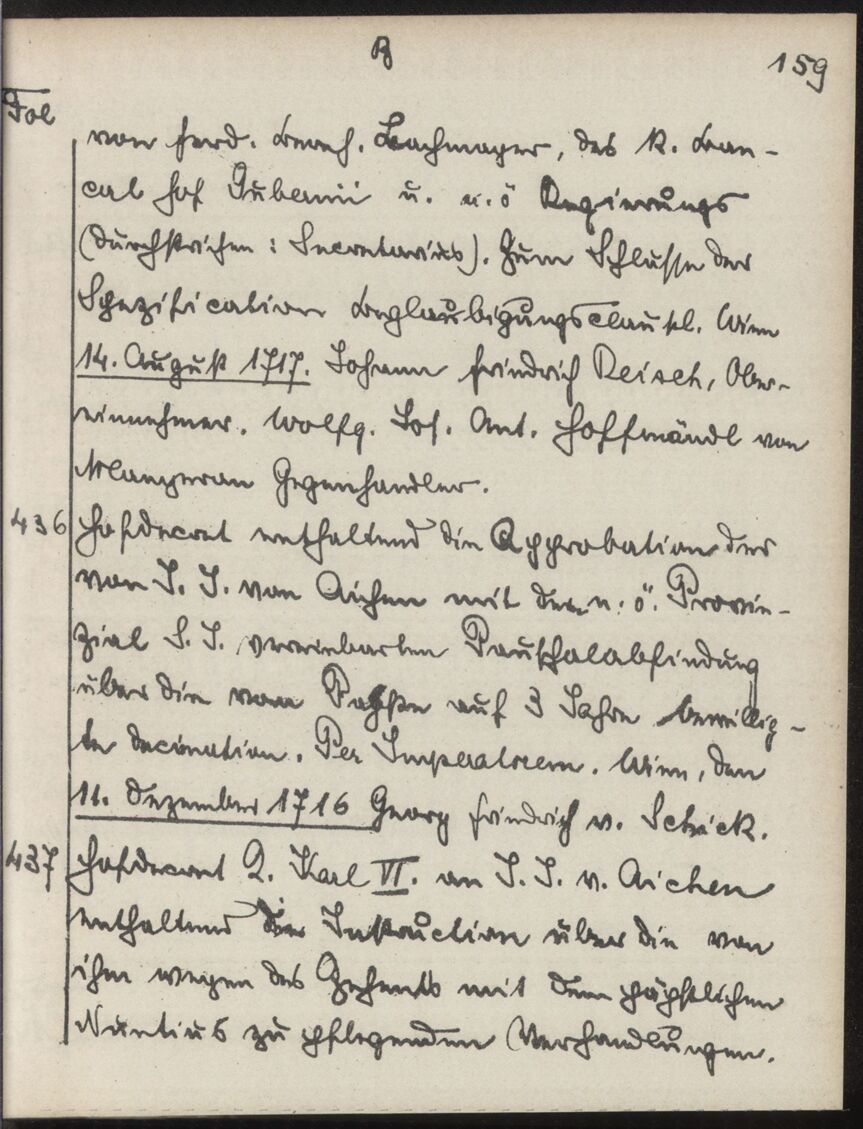 B
159
Fol
von Ferd. Bernh. Bachmayer, des K. Ban-
cal Hof Gubernii u. n. ö Regierungs
(durchstrichen: Secretarius). Zum Schlusse der
Spezification Beglaubigungsclausel. Wien
14. August 1717. Johann Friedrich Reisch, Ober-
einnehmer. Wolfg. Jos. Ant. Hoffmändl von
Mangeran Gegenhandler.
436 Hofdecret enthaltend die Approbation der
von J. J. von Aichen mit den n. ö. Provin-
zial S. J. vereinbarten Pauschalabfindung
über die vom Papste auf 3 Jahre bewillig-
te Decimation. Per Imperatorem. Wien, den
11. Dezember 1716 Georg Friedrich v. Schick.
437 Hofdecret K. Karl VI. an J. J. v. Aichen
enthaltend die Instruction über die von
ihm wegen des Zehents mit dem päpstlichen
Nuntius zu pflegenden Verhandlungen.